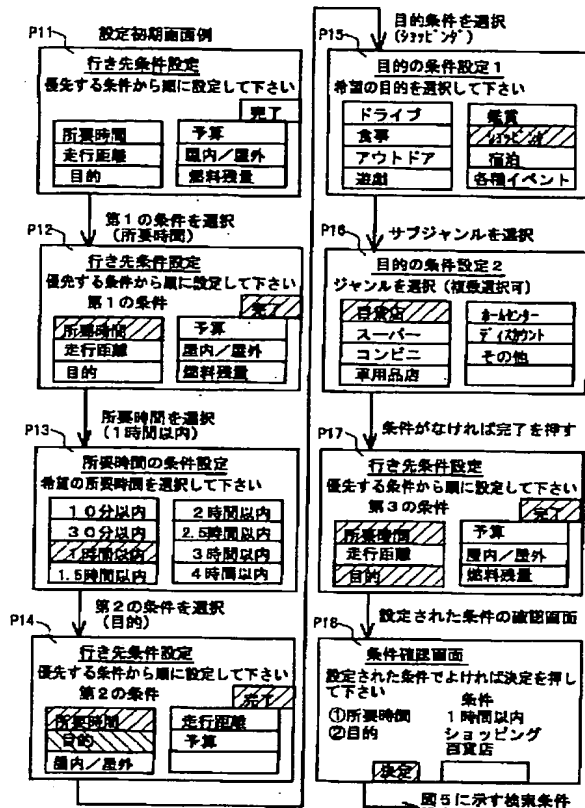 P11
設定初期画面例
行き先条件設定
優先する条件から順に設定して下さい
完了
所要時間
予算
走行距離
屋内／屋外
目的
燃料残量
第1の条件を選択
(所要時間)
P12
行き先条件設定
優先する条件から順に設定して下さい
第1の条件
完了
所要時間
予算
走行距離
屋内／屋外
目的
燃料残量
所要時間を選択
(1時間以内)
P13
所要時間の条件設定
希望の所要時間を選択して下さい
10分以内
2時間以内
30分以内
2.5時間以内
1時間以内
3時間以内
1.5時間以内
4時間以内
第2の条件を選択
(目的)
P14
行き先条件設定
優先する条件から順に設定して下さい
第2の条件
完了
所要時間
走行距離
目的
予算
屋内／屋外
目的条件を選択
(ショッピング)
P15
目的の条件設定1
希望の目的を選択して下さい
ドライブ
鑑賞
食事
ショッピング
アウトドア
宿泊
遊戯
各種イベント
サブジャンルを選択
P16
目的の条件設定2
ジャンルを選択(複数選択可)
百貨店
ホームセンター
スーパー
ディスカウント
コンビニ
その他
車用品店
条件がなければ完了を押す
P17
行き先条件設定
優先する条件から順に設定して下さい
第3の条件
完了
所要時間
予算
走行距離
屋内／屋外
目的
燃料残量
設定された条件の確認画面
P18
条件確認画面
設定された条件でよければ決定を押し
て下さい
条件
①所要時間
1時間以内
②目的
ショッピング
百貨店
決定
図5に示す検索条件